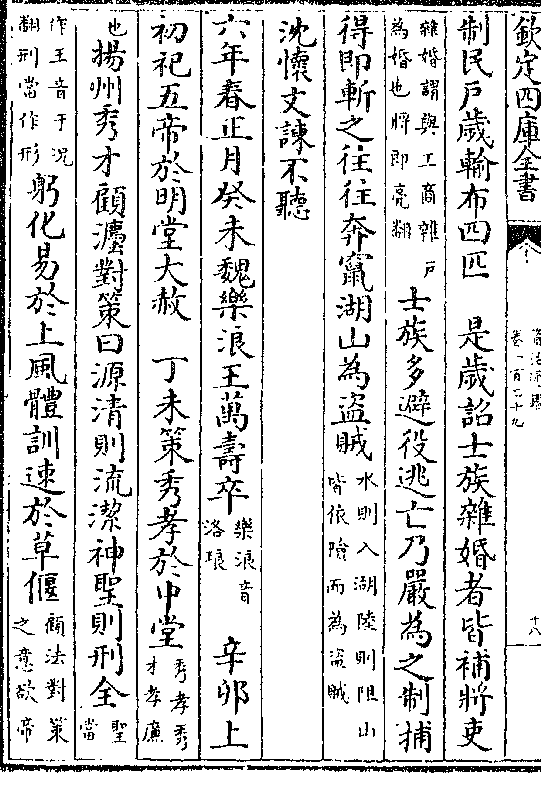 欽定四庫全書
資治通鑑
卷一百二十九
十八
制民戶歲輸布四匹　是歲詔士族雜婚者皆補將吏
雜婚謂與工商雜戶
為婚也將即亮翻
士族多避役逃亡乃嚴為之制捕
得即斬之往往奔竄湖山為盜賊
水則入湖陸則阻山
皆依險而為盜賊
沈懷文諫不聽
六年春正月癸未魏樂浪王萬壽卒
樂浪音
洛琅
辛卯上
初祀五帝於明堂大赦　丁未策秀孝於中堂
秀孝秀
才孝廉
也
揚州秀才顧灋對策曰源清則流潔神聖則刑全
聖
當
作王音于況
翻刑當作形
躬化易於上風體訓速於草偃
顧法對策
之意欲帝